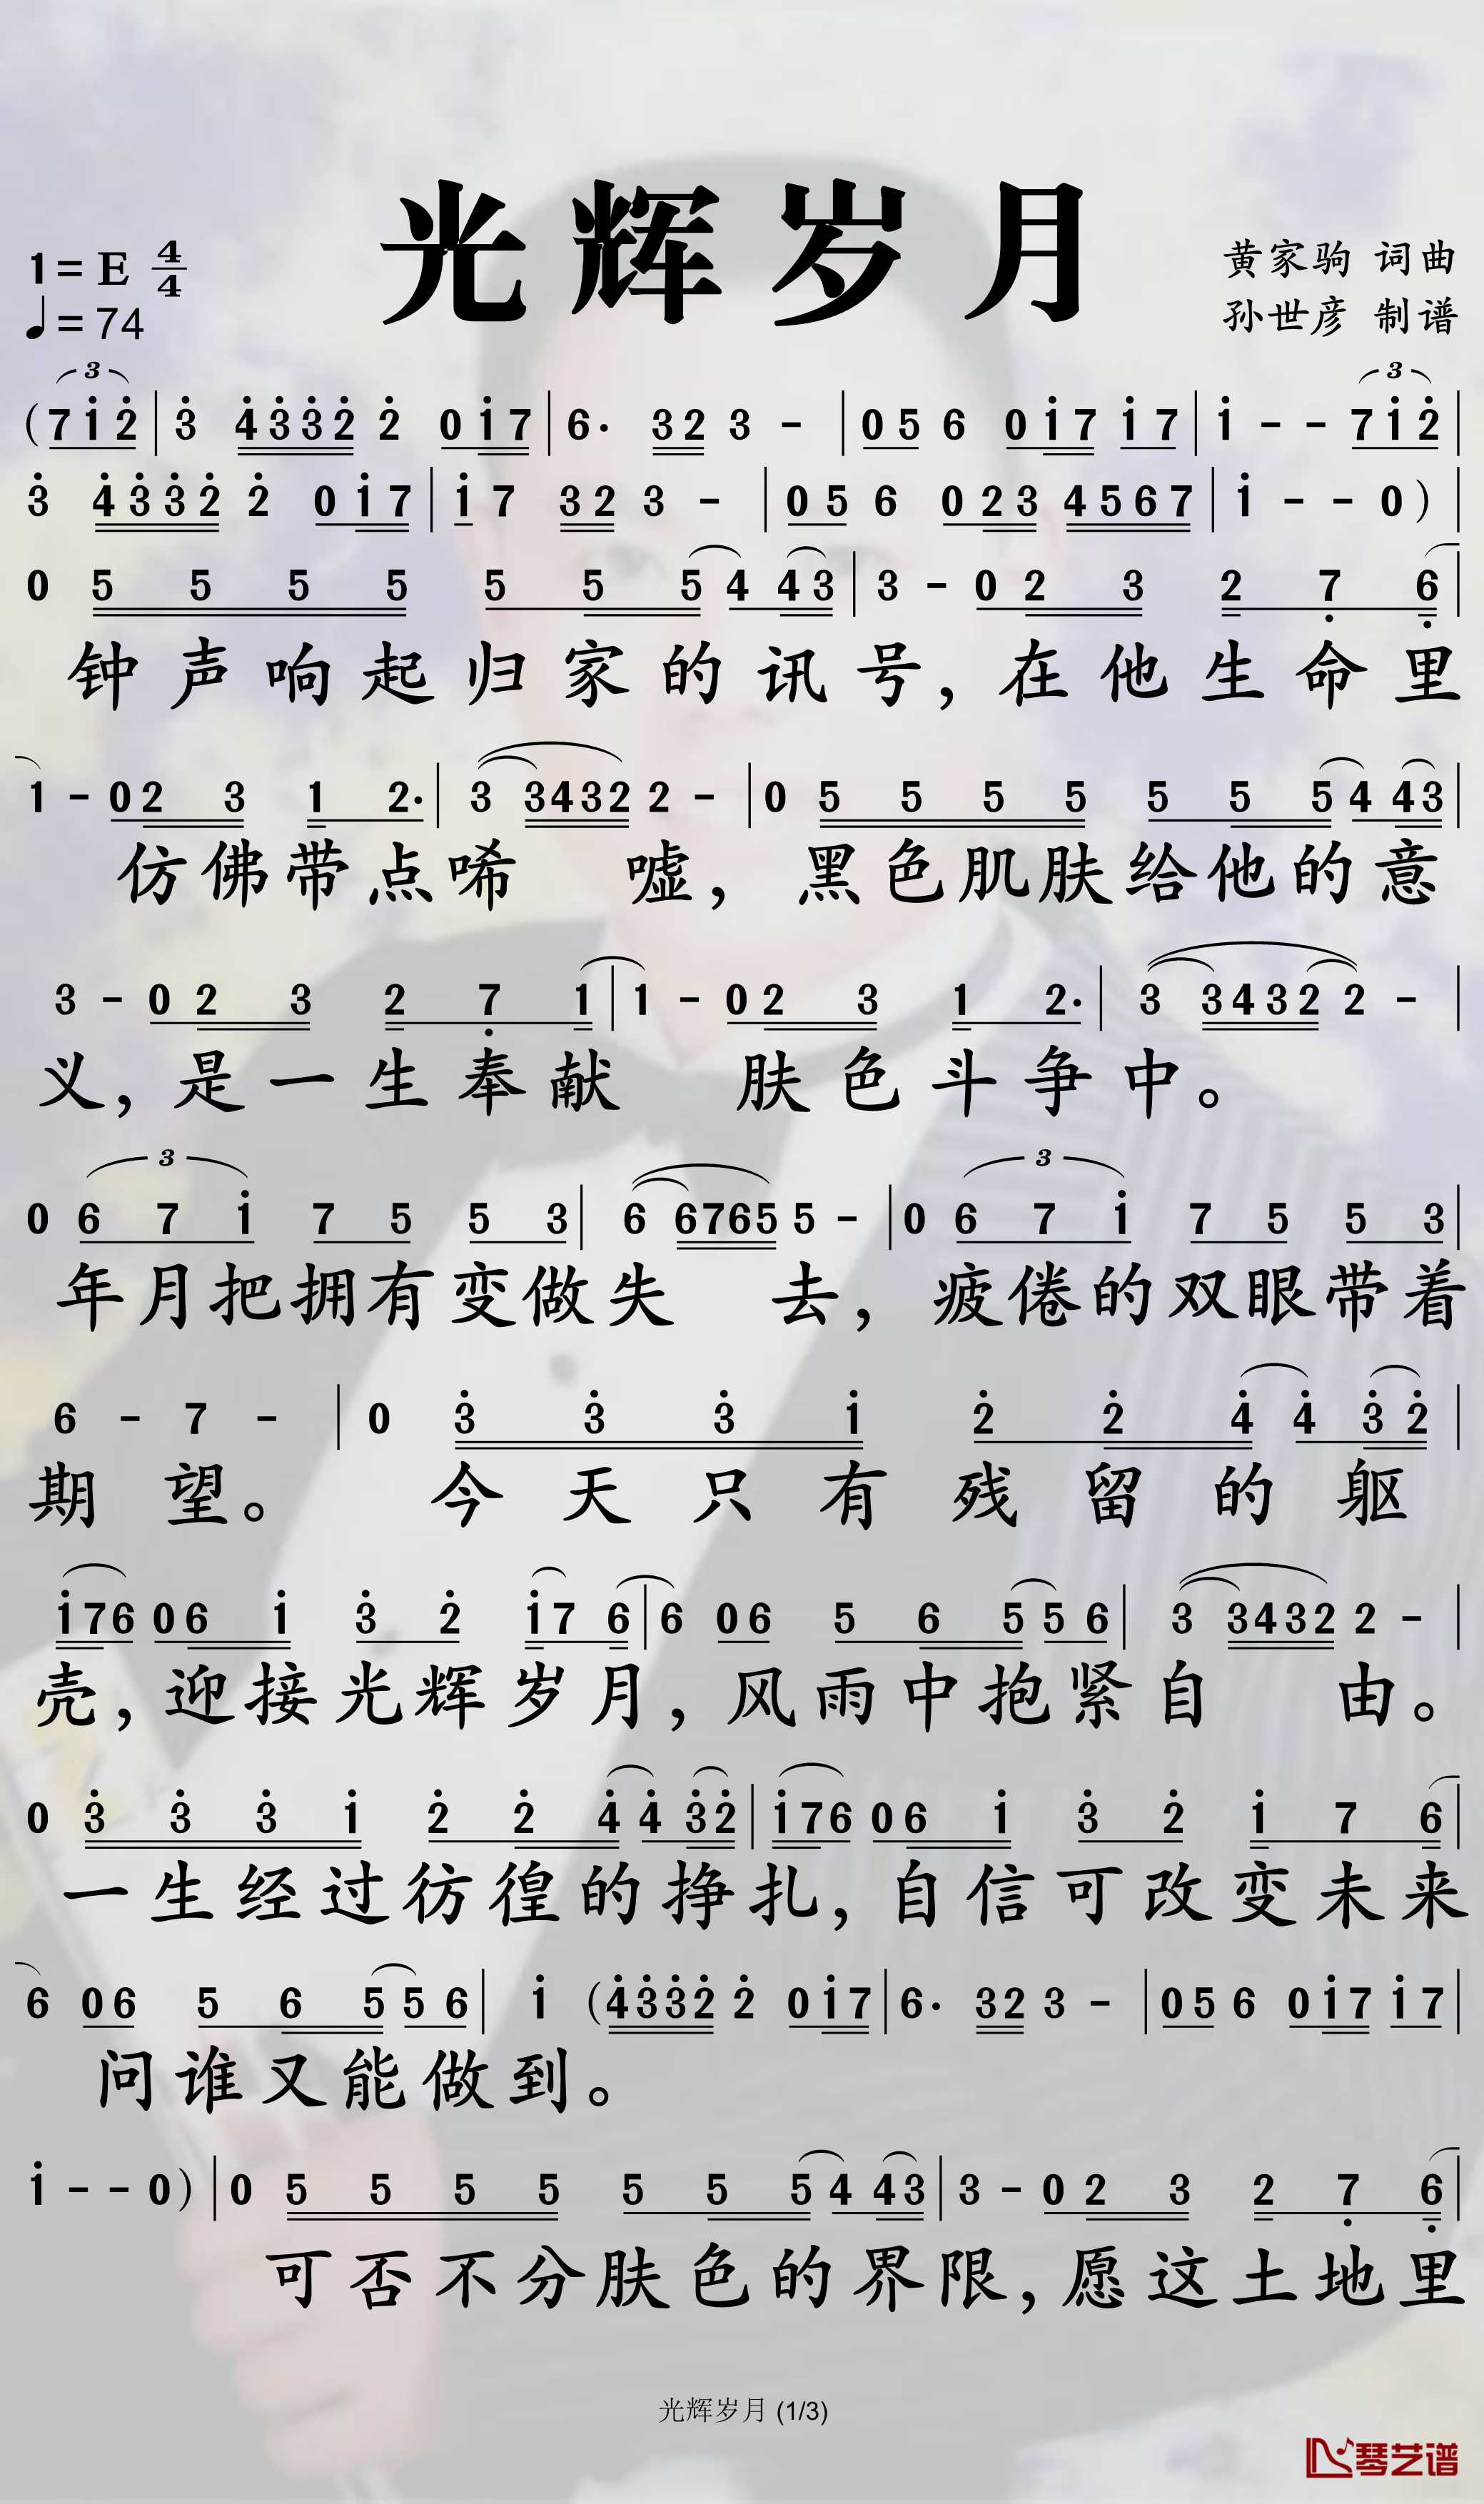 光辉岁月
1=E 4/4
♩=74
黄家驹 词曲
孙世彦 制谱
(7 1̇ 2̇ | 3̇ 4̇ 3̇ 3̇ 2̇ 2̇ 0 1̇ 7 | 6· 3 2 3 - | 0 5 6 0 1̇ 7 1̇ 7 | 1̇ - - 7 1̇ 2̇ |
3̇ 4̇ 3̇ 3̇ 2̇ 2̇ 0 1̇ 7 | 1̇ 7 3 2 3 - | 0 5 6 0 2 3 4 5 6 7 | 1̇ - - 0) |
0 5 5 5 5 5 5 5 4 4 3 | 3 - 0 2 3 2 7̣ 6̣ |
钟声响起归家的讯号,在他生命里
1 - 0 2 3 1 2· | 3 3 4 3 2 2 - | 0 5 5 5 5 5 5 5 4 4 3 |
仿佛带点唏 嘘,黑色肌肤给他的意
3 - 0 2 3 2 7̣ 1 | 1 - 0 2 3 1 2· | 3 3 4 3 2 2 - |
义,是一生奉献 肤色斗争中。
0 6 7 1̇ 7 5 5 3 | 6 6 7 6 5 5 - | 0 6 7 1̇ 7 5 5 3 |
年月把拥有变做失 去,疲倦的双眼带着
6 - 7 - | 0 3̇ 3̇ 3̇ 1̇ 2̇ 2̇ 4̇ 4̇ 3̇ 2̇ |
期 望。 今天只有残留的躯
1̇ 7 6 0 6 1̇ 3̇ 2̇ 1̇ 7 6 | 6 0 6 5 6 5 5 6 | 3 3 4 3 2 2 - |
壳,迎接光辉岁月,风雨中抱紧自 由。
0 3̇ 3̇ 3̇ 1̇ 2̇ 2̇ 4̇ 4̇ 3̇ 2̇ | 1̇ 7 6 0 6 1̇ 3̇ 2̇ 1̇ 7 6 |
一生经过彷徨的挣扎,自信可改变未来
6 0 6 5 6 5 5 6 | 1̇ (4̇ 3̇ 3̇ 2̇ 2̇ 0 1̇ 7 | 6· 3 2 3 - | 0 5 6 0 1̇ 7 1̇ 7 |
问谁又能做到。
1̇ - - 0) | 0 5 5 5 5 5 5 5 4 4 3 | 3 - 0 2 3 2 7̣ 6̣ |
可否不分肤色的界限,愿这土地里
光辉岁月 (1/3)
琴艺谱